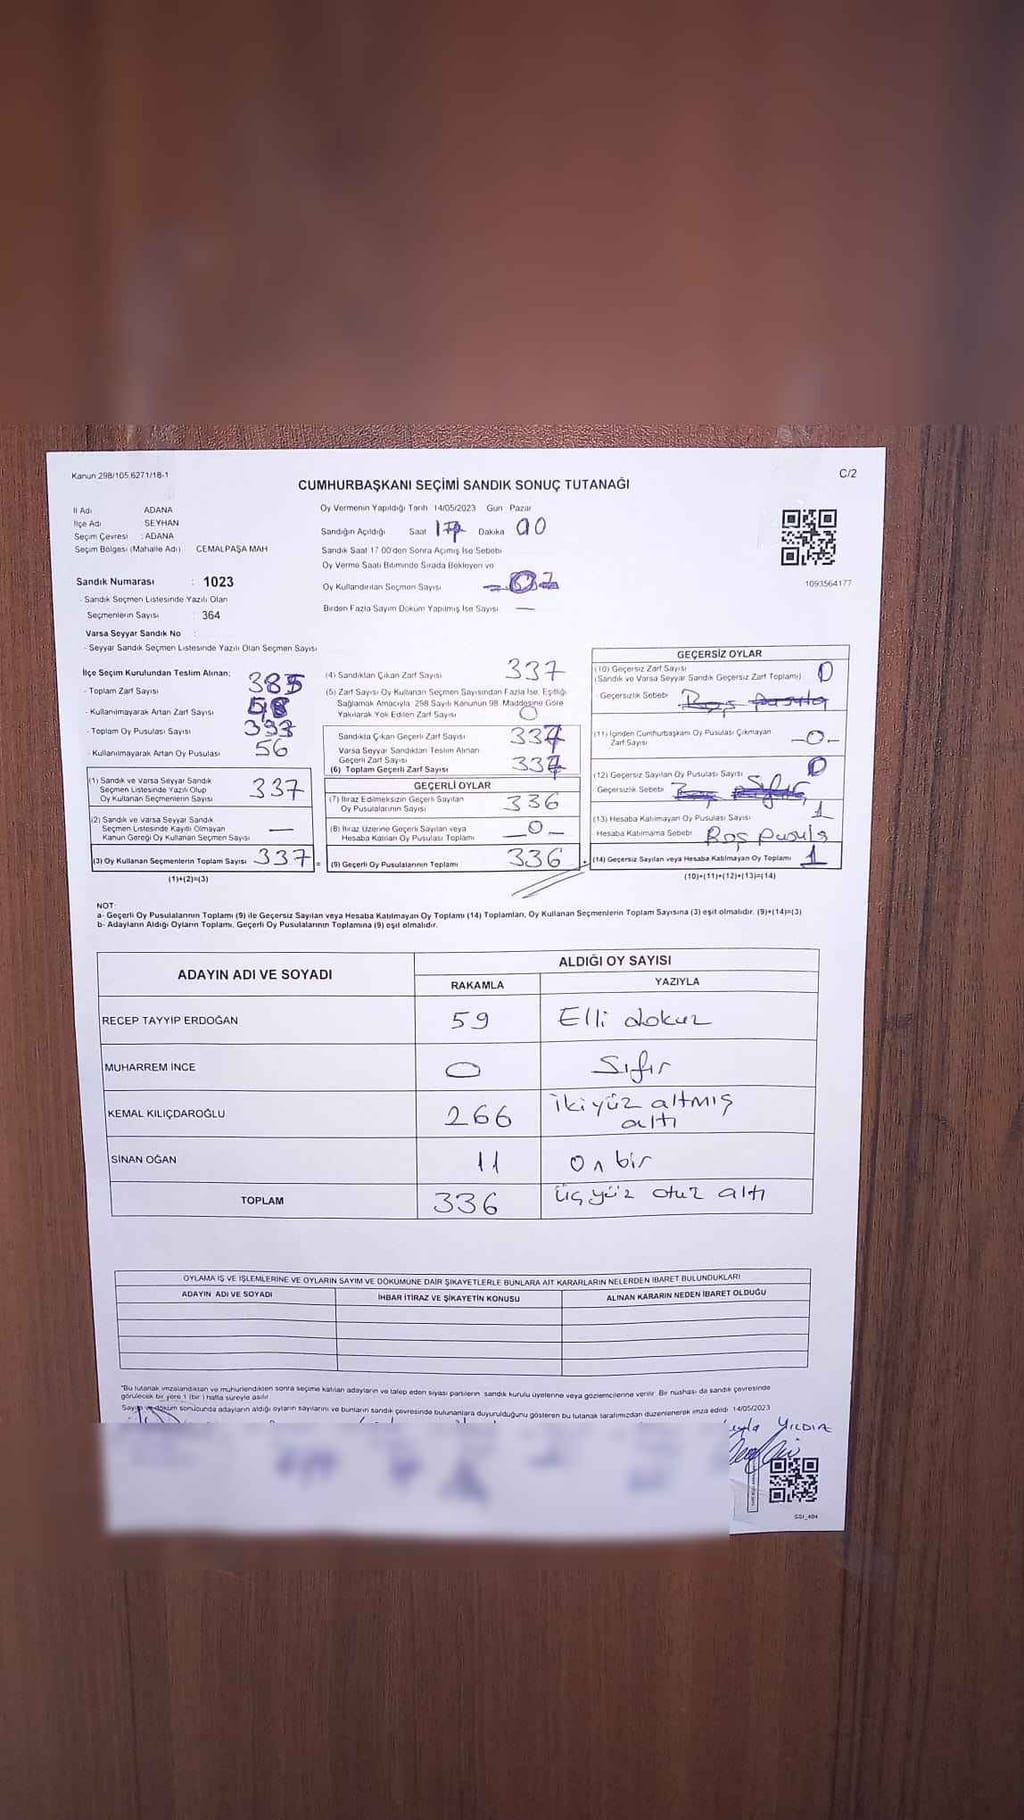 Kanun 298/105.6271/18-1
C/2
CUMHURBAŞKANI SEÇİMİ SANDIK SONUÇ TUTANAĞI
İl Adı ADANA
İlçe Adı SEYHAN
Seçim Çevresi : ADANA
Seçim Bölgesi (Mahalle Adı) CEMALPAŞA MAH
Sandık Numarası : 1023
- Sandık Seçmen Listesinde Yazılı Olan
Seçmenlerin Sayısı : 364
Varsa Seyyar Sandık No
- Seyyar Sandık Seçmen Listesinde Yazılı Olan Seçmen Sayısı
Oy Vermenin Yapıldığı Tarih 14/05/2023 Gün Pazar
Sandığın Açıldığı Saat 17 Dakika 00
Sandık Saat 17.00'den Sonra Açımış İse Sebebi
Oy Verme Saati Bitiminde Sırada Bekleyen ve
Oy Kullandırılan Seçmen Sayısı
Birden Fazla Sayım Döküm Yapılmış İse Sayısı —
1093564177
İlçe Seçim Kurulundan Teslim Alınan;
- Toplam Zarf Sayısı 385
- Kullanılmayarak Artan Zarf Sayısı
- Toplam Oy Pusulası Sayısı 393
- Kullanılmayarak Artan Oy Pusulası 56
(1) Sandık ve Varsa Seyyar Sandık
Seçmen Listesinde Yazılı Olup
Oy Kullanan Seçmenlerin Sayısı 337
(2) Sandık ve Varsa Seyyar Sandık
Seçmen Listesinde Kayıtlı Olmayan
Kanun Gereği Oy Kullanan Seçmen Sayısı —
(3) Oy Kullanan Seçmenlerin Toplam Sayısı 337
(1)+(2)=(3)
(4) Sandıktan Çıkan Zarf Sayısı 337
(5) Zarf Sayısı Oy Kullanan Seçmen Sayısından Fazla İse, Eşitliği
Sağlamak Amacıyla, 298 Sayılı Kanunun 98. Maddesine Göre
Yakılarak Yok Edilen Zarf Sayısı 0
Sandıkta Çıkan Geçerli Zarf Sayısı 337
Varsa Seyyar Sandıktan Teslim Alınan
Geçerli Zarf Sayısı
(6) Toplam Geçerli Zarf Sayısı 337
GEÇERLİ OYLAR
(7) İtiraz Edilmeksizin Geçerli Sayılan
Oy Pusulalarının Sayısı 336
(8) İtiraz Üzerine Geçerli Sayılan veya
Hesaba Katılan Oy Pusulası Toplamı —0—
(9) Geçerli Oy Pusulalarının Toplamı 336
GEÇERSİZ OYLAR
(10) Geçersiz Zarf Sayısı
(Sandık ve Varsa Seyyar Sandık Geçersiz Zarf Toplamı) 0
Geçersizlik Sebebi Boş pusula
(11) İçinden Cumhurbaşkanı Oy Pusulası Çıkmayan
Zarf Sayısı —0—
(12) Geçersiz Sayılan Oy Pusulası Sayısı 0
Geçersizlik Sebebi
(13) Hesaba Katılmayan Oy Pusulası Sayısı 1
Hesaba Katılmama Sebebi Boş pusula
(14) Geçersiz Sayılan veya Hesaba Katılmayan Oy Toplamı 1
(10)+(11)+(12)+(13)=(14)
NOT:
a- Geçerli Oy Pusulalarının Toplamı (9) ile Geçersiz Sayılan veya Hesaba Katılmayan Oy Toplamı (14) Toplamları, Oy Kullanan Seçmenlerin Toplam Sayısına (3) eşit olmalıdır. (9)+(14)=(3)
b- Adayların Aldığı Oyların Toplamı, Geçerli Oy Pusulalarının Toplamına (9) eşit olmalıdır.
ADAYIN ADI VE SOYADI ALDIĞI OY SAYISI
RAKAMLA YAZIYLA
RECEP TAYYİP ERDOĞAN 59 Elli dokuz
MUHARREM İNCE 0 Sıfır
KEMAL KILIÇDAROĞLU 266 ikiyüz altmış altı
SİNAN OĞAN 11 On bir
TOPLAM 336 üçyüz otuz altı
OYLAMA İŞ VE İŞLEMLERİNE VE OYLARIN SAYIM VE DÖKÜMÜNE DAİR ŞİKAYETLERLE BUNLARA AİT KARARLARIN NELERDEN İBARET BULUNDUKLARI
ADAYIN ADI VE SOYADI İHBAR İTİRAZ VE ŞİKAYETİN KONUSU ALINAN KARARIN NEDEN İBARET OLDUĞU
"Bu tutanak imzalandıktan ve mühürlendikten sonra seçime katılan adayların ve talep eden siyasi partilerin sandık kurulu üyelerine veya gözlemcilerine verilir. Bir nüshası da sandık çevresinde
görülecek bir yere 1 (bir) hafta süreyle asılır.
Sayım ve döküm sonucunda adayların aldığı oyların sayılarını ve bunların sandık çevresinde bulunanlara duyurulduğunu gösteren bu tutanak tarafımızdan düzenlenerek imza edildi. 14/05/2023
SSI_404